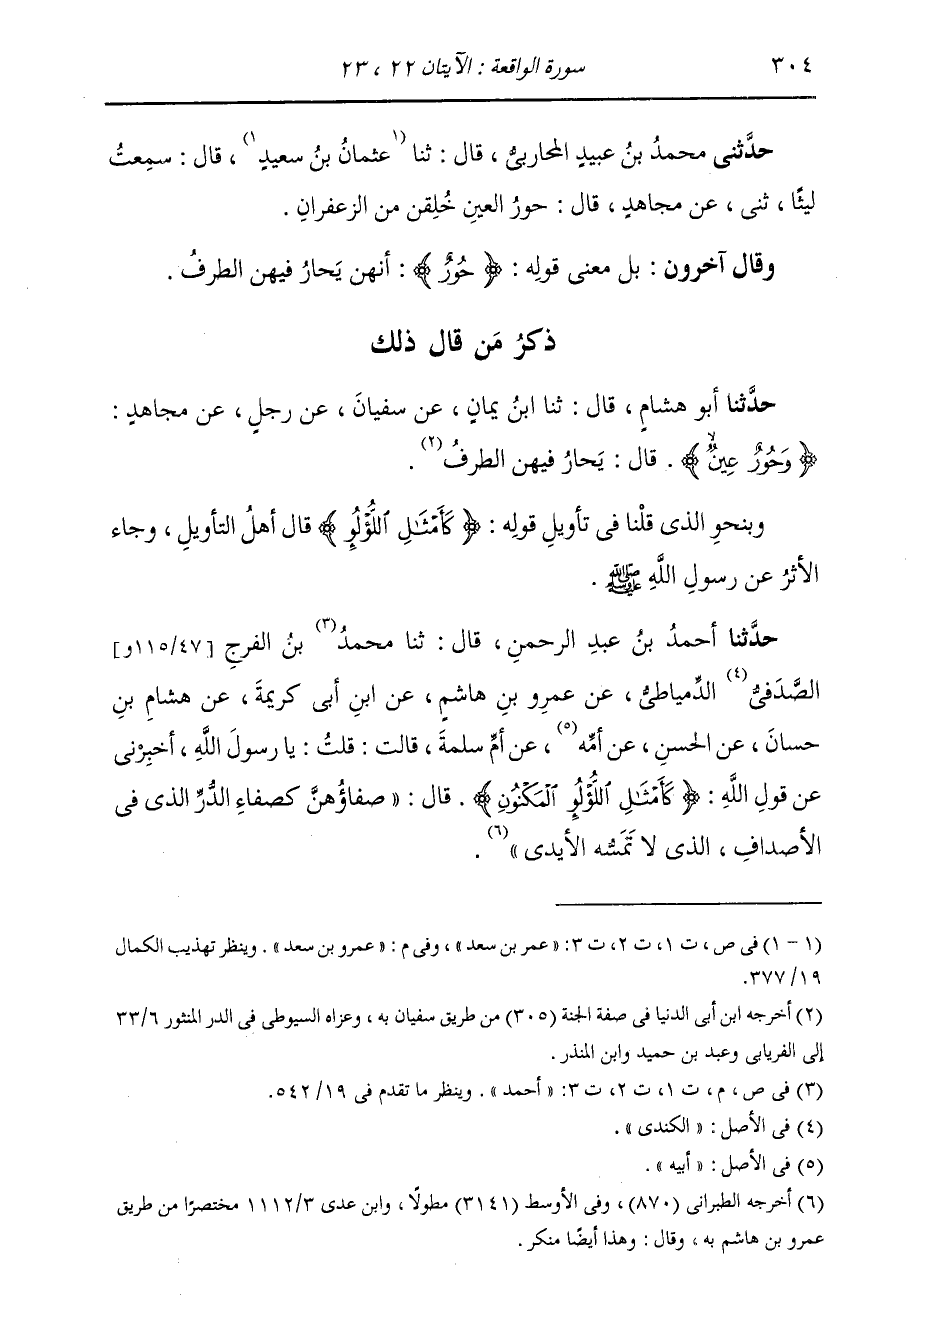 ٣٠٤ سورة الواقعة : الآيتان ٢٢ ، ٢٣
حدَّثنى محمدُ بنُ عبيدٍ المحاربىُّ ، قال : ثنا (١عثمانُ بنُ سعيدٍ١) ، قال : سمِعتُ
ليثًا ، ثنى ، عن مجاهدٍ ، قال : حورُ العينِ خُلِقن من الزعفرانِ .
وقال آخرون : بل معنى قولِه : ﴿ حُورٌ ﴾ : أنهن يَحارُ فيهن الطرفُ .
ذكرُ مَن قال ذلك
حدَّثنا أبو هشامٍ ، قال : ثنا ابنُ يمانٍ ، عن سفيانَ ، عن رجلٍ ، عن مجاهدٍ :
﴿ وَحُورٌ عِينٌ ﴾ . قال : يَحارُ فيهن الطرفُ(٢) .
وبنحوِ الذى قلْنا فى تأويلِ قولِه : ﴿ كَأَمْثَـٰلِ ٱللُّؤْلُوِٕ ﴾ قال أهلُ التأويلِ ، وجاء
الأثرُ عن رسولِ اللَّهِ ﷺ .
حدَّثنا أحمدُ بنُ عبدِ الرحمنِ ، قال : ثنا محمدُ(٣) بنُ الفرجِ [١١٥/٤٧و]
الصَّدَفىُّ(٤) الدِّمياطىُّ ، عن عمرِو بنِ هاشمٍ ، عن ابنِ أبى كريمةَ ، عن هشامِ بنِ
حسانَ ، عن الحسنِ ، عن أمِّه(٥) ، عن أمِّ سلمةَ ، قالت : قلتُ : يا رسولَ اللَّهِ ، أخبِرْنى
عن قولِ اللَّهِ : ﴿ كَأَمْثَـٰلِ ٱللُّؤْلُوِٕ ٱلْمَكْنُونِ ﴾ . قال : « صفاؤُهنَّ كصفاءِ الدُّرِّ الذى فى
الأصدافِ ، الذى لا تَمَسُّه الأيدى »(٦) .
(١ - ١) فى ص ، ت ١ ، ت ٢ ، ت ٣ : « عمر بن سعد » ، وفى م : « عمرو بن سعد » . وينظر تهذيب الكمال
١٩/ ٣٧٧.
(٢) أخرجه ابن أبى الدنيا فى صفة الجنة (٣٠٥) من طريق سفيان به ، وعزاه السيوطى فى الدر المنثور ٣٣/٦
إلى الفريابى وعبد بن حميد وابن المنذر .
(٣) فى ص ، م ، ت ١ ، ت ٢ ، ت ٣ : « أحمد » . وينظر ما تقدم فى ١٩/ ٥٤٢.
(٤) فى الأصل : « الكندى » .
(٥) فى الأصل : « أبيه » .
(٦) أخرجه الطبرانى (٨٧٠) ، وفى الأوسط (٣١٤١) مطولًا ، وابن عدى ١١١٢/٣ مختصرًا من طريق
عمرو بن هاشم به ، وقال : وهذا أيضًا منكر .